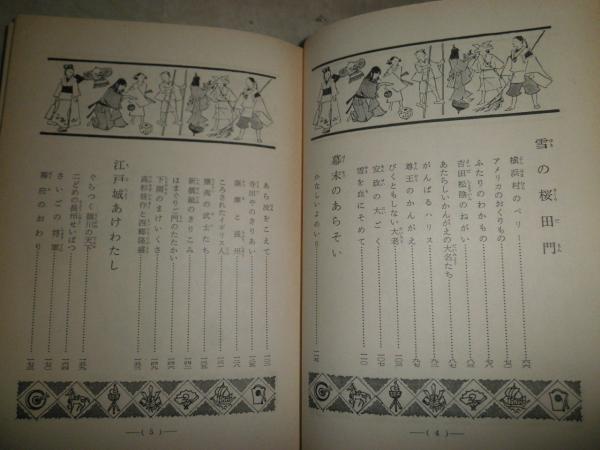 雪の桜田門
横浜村のペリー
アメリカのおくりもの
ふたりのわかもの
吉田松陰のねがい
あたらしいかんがえの大名たち
がんばるハリス
尊王のかんがえ
びくともしない大老
安政の大ごく
雪を血にそめて
幕末のあらそい
かなしいよめいり
―( 4 )―
あら波をこえて
寺田やのきりあい
薩摩と長州
ころされたイギリス人
攘夷の武士たち
新撰組のきりこみ
はまぐり門のたたかい
下関のまけいくさ
高杉晋作と西郷隆盛
江戸城あけわたし
ぐらつく徳川の天下
二どめの長州せいばつ
さいごの将軍
幕府のおわり
―( 5 )―